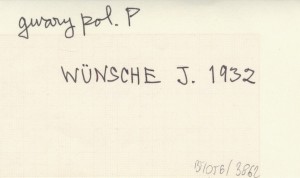 gwary pol. P
WÜNSCHE J. 1932
/3862